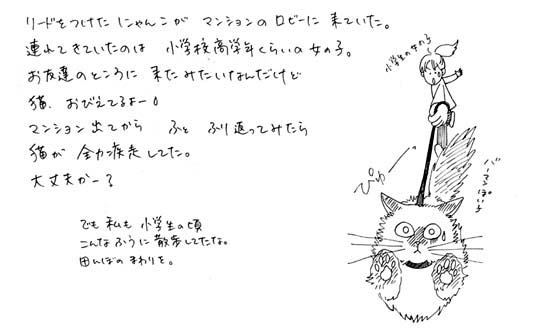 リードをつけたにゃんこが マンションのロビーに来ていた。
連れてきていたのは 小学校高学年くらいの女の子。
お友達のところに 来たみたいなんだけど
猫、おびえてるよー!
マンション出てから ふと ふり返ってみたら
猫が 全力疾走してた。
大丈夫かー?
でも私も小学生の頃
こんなふうに散歩してたな。
田んぼのまわりを。
小学生の女の子
ぴゅー
バーマンぽい子